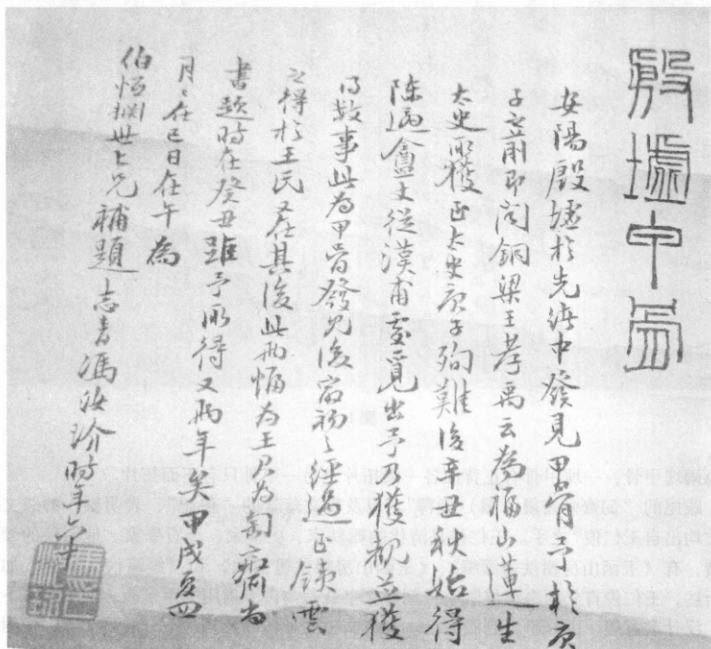 殷墟甲骨
安陽殷墟於光緒中發見甲骨文於庚
子之前即聞銅梁王孝禹云為福山蓮生
太史所獲正太史庚子殉難後辛丑秋始得
陳遯盦丈從漢甫處覓出予乃獲觀並獲
事此為甲骨發見後最初之經過正鐵雲
之得於王氏又在其後此兩幅為王君為匋齋尚
書題時在癸丑距予所得又兩年矣甲戌夏四
月在己日在午為
伯恒世上兄補題 志青馮汝玠時年六十